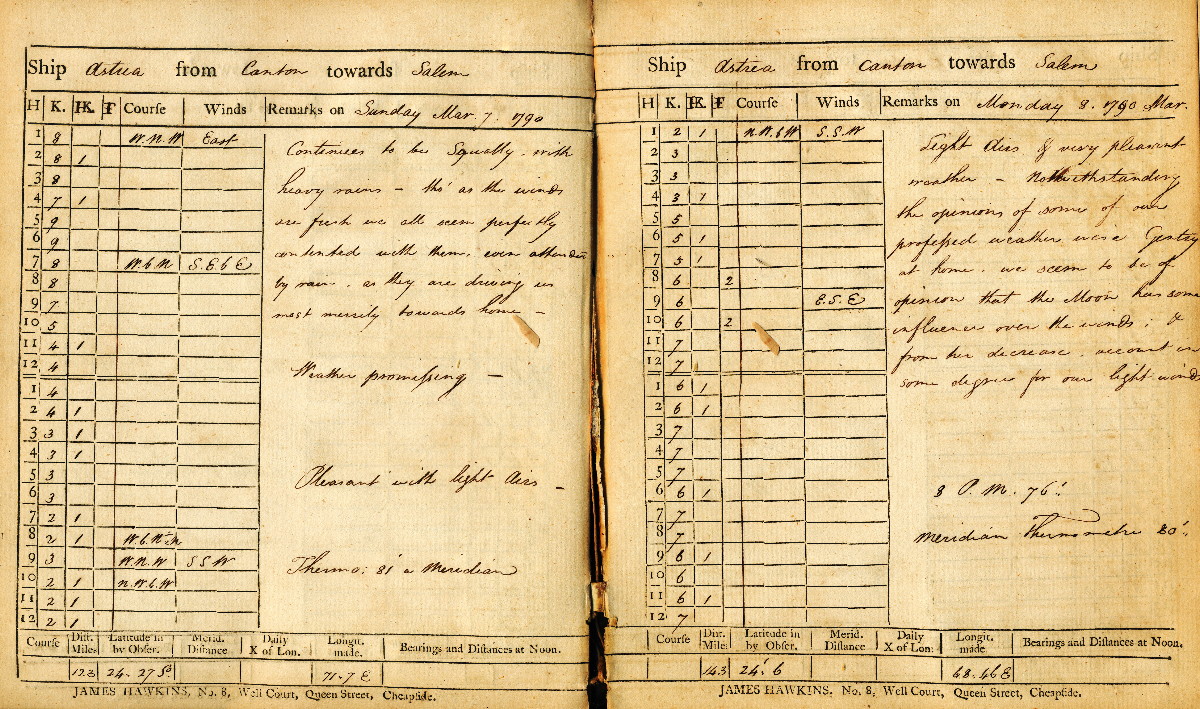 Ship Astrea from Canton towards Salem
H K. HK. F Course Winds Remarks on Sunday Mar. 7. 1790
1 8 W.N.W East
2 8 1
3 8
4 7 1
5 9
6 9
7 8 W.b.N S.E.b.E
8 8
9 7
10 5
11 4 1
12 4
1 4
2 4 1
3 3 1
4 3 1
5 3
6 3
7 2 1
8 2 1
9 3 W.N.W S S W
10 2 1 N.W.b.W
11 2 1
12 2 1
Continues to be Squally. with
heavy rains – tho' as the winds
are fresh we all seem perfectly
contented with them, even attended
by rain. as they are driving us
most merrily towards home –
Weather promissing –
Pleasant with light Airs –
Thermo: 81' a Meridian
Course Dist. Miles Latitude in by Obser. Merid. Distance Daily X of Lon. Longit. made. Bearings and Distances at Noon.
123 24. 27 So 71. 7 E
JAMES HAWKINS, No. 8, Well Court, Queen Street, Cheapside.
Ship Astrea from Canton towards Salem
H K. HK. F Course Winds Remarks on Monday 8. 1790 Mar.
1 2 1 N.W.b.W S.S.W
2 3
3 3
4 3 1
5 5
6 5 1
7 5 1
8 6 2
9 6 E.S.E
10 6 2
11 7
12 7
1 6 1
2 6 1
3 7
4 7
5 7
6 6 1
7 7
8 7
9 6 1
10 6
11 6 1
12 7
Light Airs & very pleasant
weather – Notwithstanding
the opinions of some of our
professed weather wise Gentry
at home. we seem to be of
opinion that the Moon has some
influence over the winds; &
from her decrease. account in
some degree for our light winds
8 P.M. 76'.
Meridian Thermometre 80'.
Course Dist. Miles Latitude in by Obser. Merid. Distance Daily X of Lon: Longit. made Bearings and Distances at Noon.
143 24' 6 68. 46 E
JAMES HAWKINS, No. 8, Well Court, Queen Street, Cheapside.